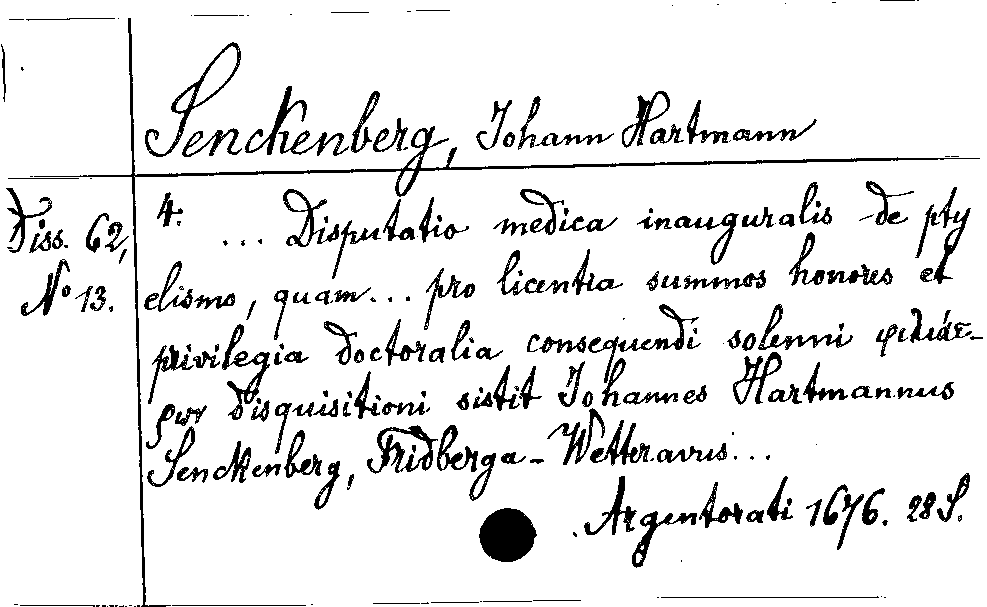 Senckenberg, Johann Hartmann
Diss. 62,
No 13.
4:
... Disputatio medica inauguralis de pty
elismo, quam... pro licentia summos honores et
privilegia doctoralia consequendi solenni
disquisitioni sistit Johannes Hartmannus
Senckenberg, Fridberga-Wetteravus...
Argentorati 1676. 28 S.